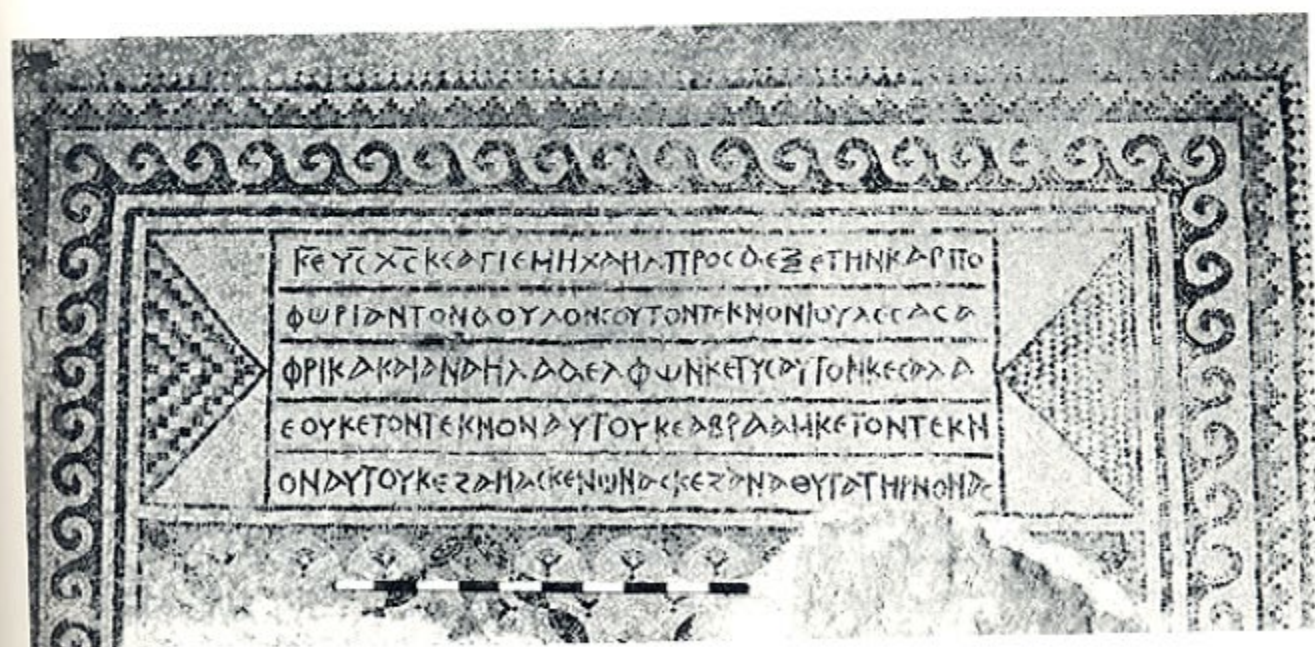 Κ̅Ε ΥϹ̅ ΧϹ̅ ΚϹΑΓΙΕΜΗΧΑΗΛΠΡΟϹΔΕΞΕΤΗΝΚΑΡΠΟ
ΦΩΡΙΑΝΤΟΝΔΟΥΛΟΝϹΟΥΤΟΝΤΕΚΝΟΝΙΟΥΛΕϹΑϹΑ
ΦΡΙΚΑΚΑΙΑΝΑΗΛΑΔΕΛΦΩΝΚΕΤΥϹΑΥΤΟΝΚΕϹΑΛΑ
ΕΟΥΚΕΤΟΝΤΕΚΝΟΝΑΥΤΟΥΚΕΑΒΡΑΑΜΚΕΤΟΝΤΕΚΝ
ΟΝΑΥΤΟΥΚΕΖΑΜΑϹΚΕΝΩΝΑϹΚΕΖΑΝΑΘΥΓΑΤΗΡΝΟΝΑϹ